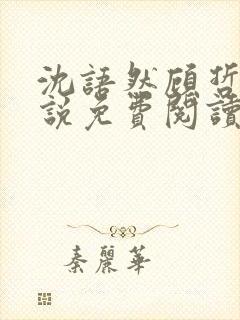 沈語然顧哲
說免費閱讀
秦麗華